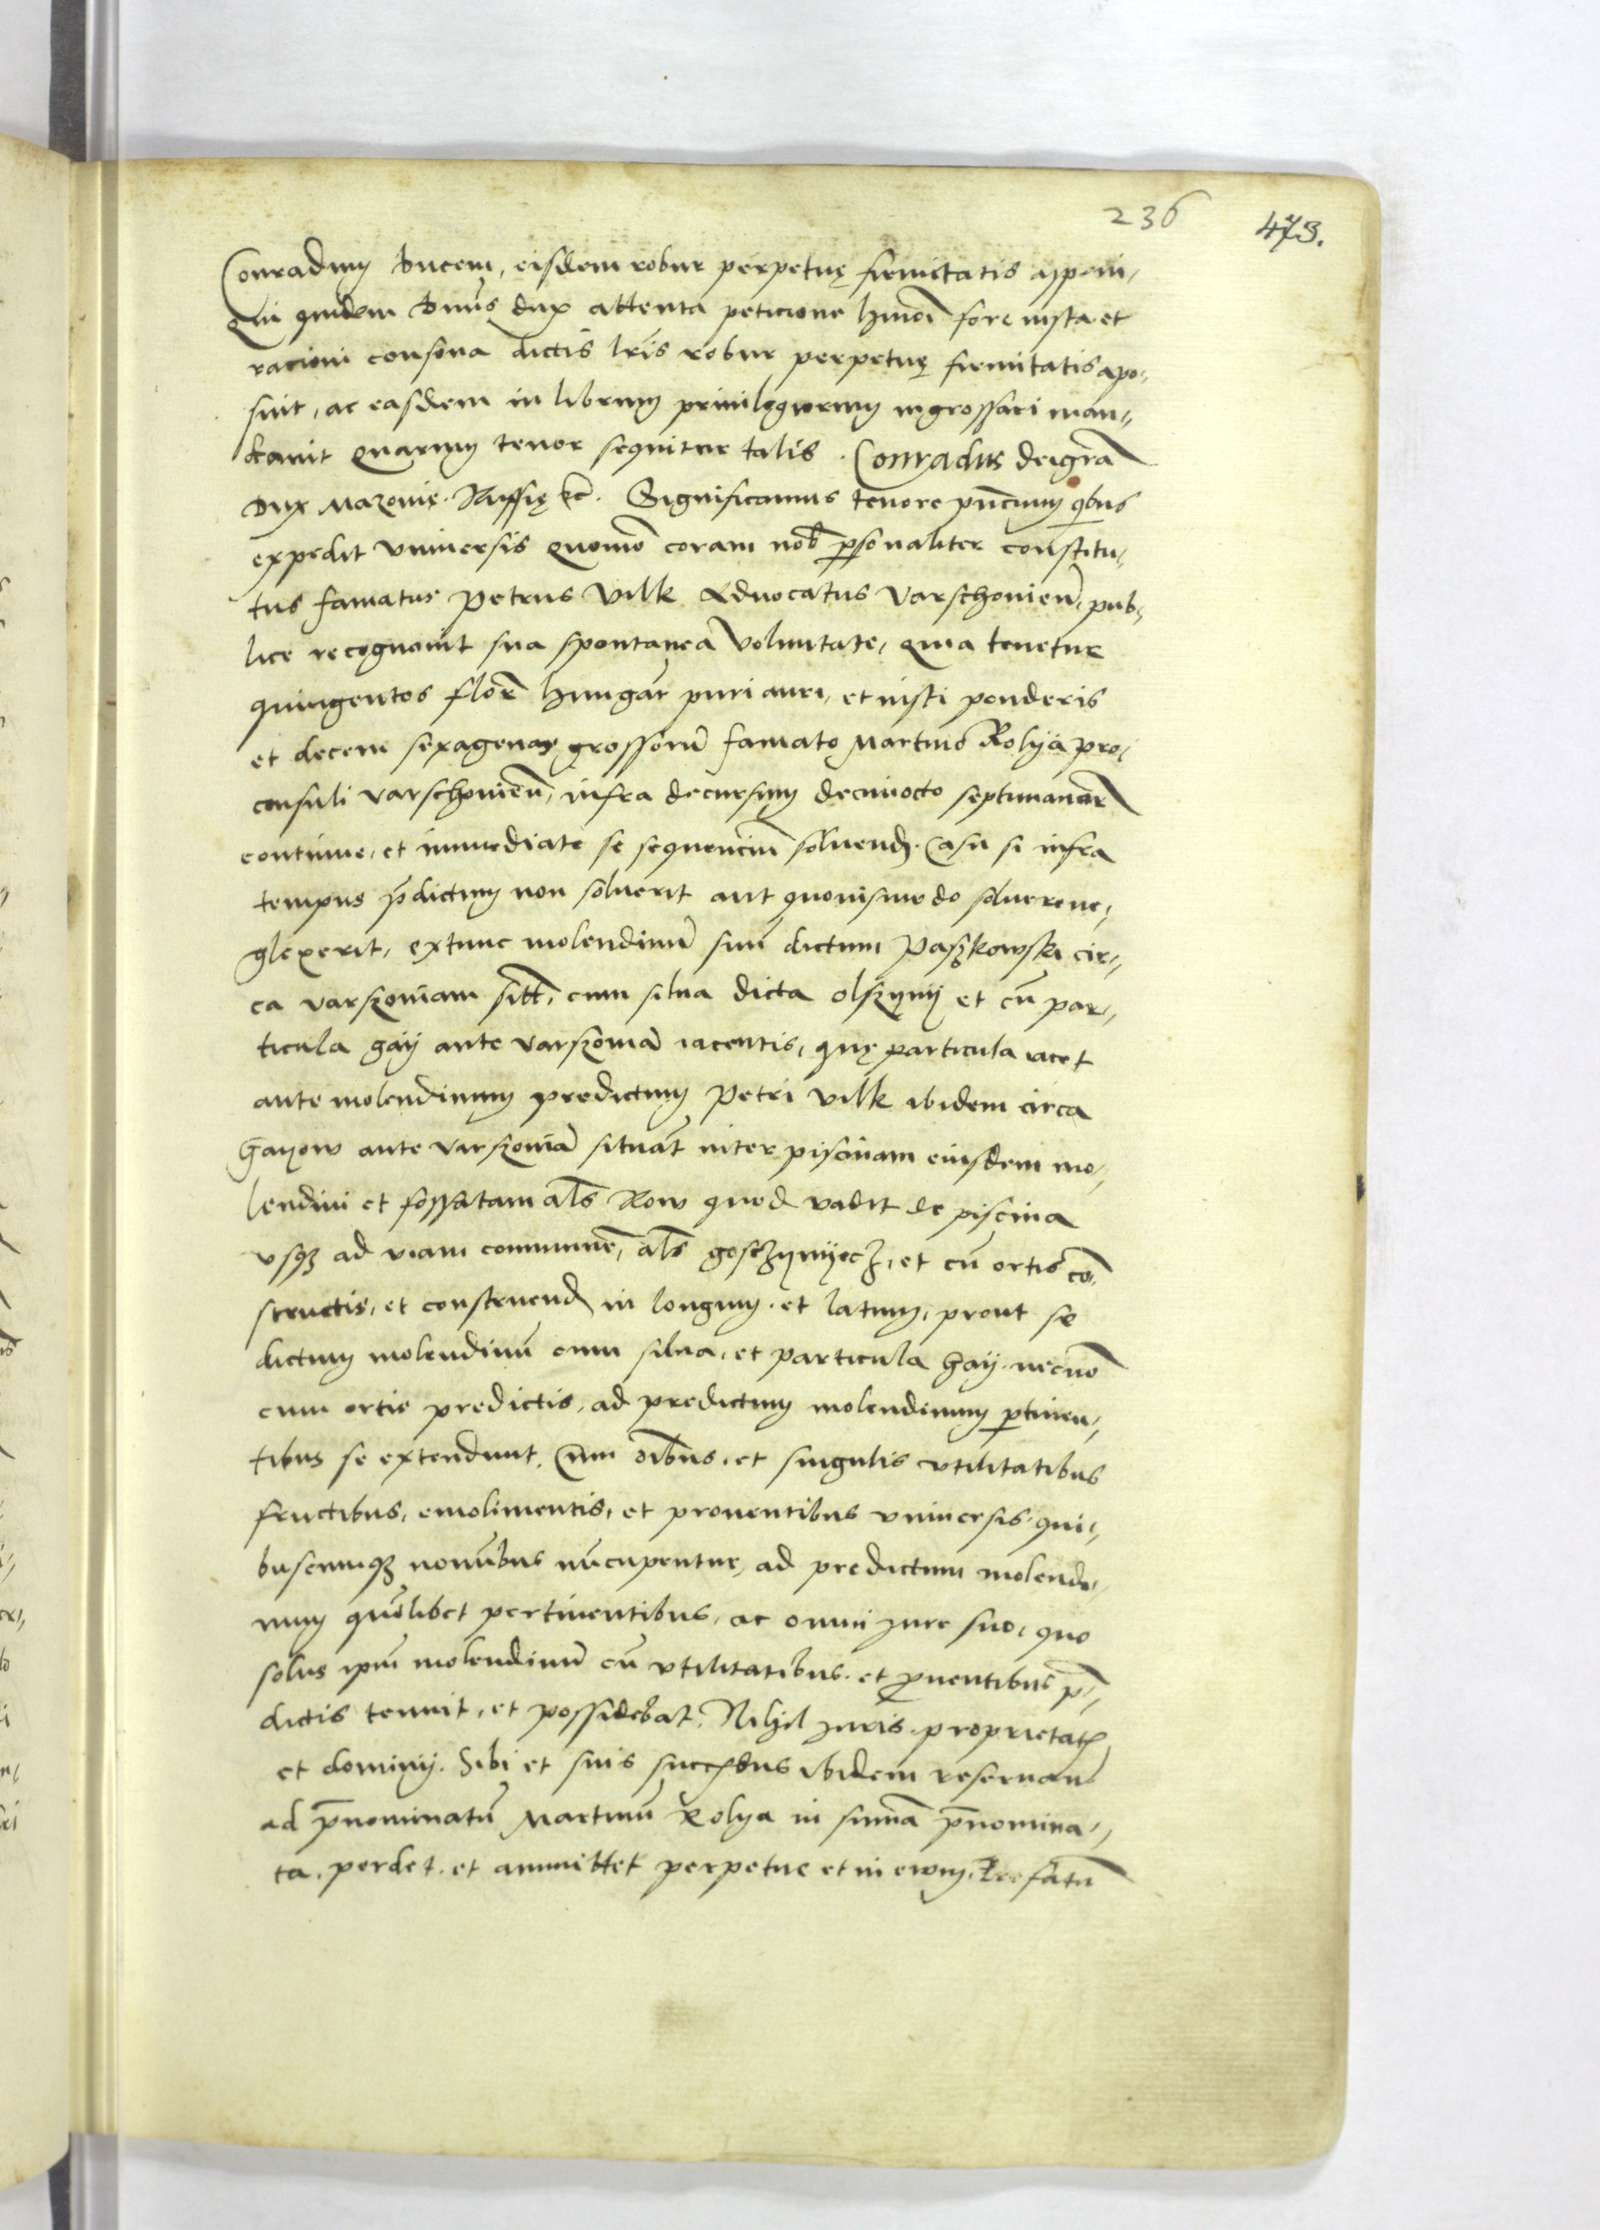 236 473.
Conradum ducem, eisdem robur perpetuę firmitatis apponi,
Qui quidem dnus dux attenta peticione hmoi fore iusta et
racioni consona dictis lris robur perpetuę firmitatis apo,
suit, ac easdem in librum priuilegiorum ingrossari man,
dauit Quarum tenor sequitur talis. Conradus dei gra
Dux Mazouię Russię etc. Significamus tenore pntium qbus
expedit Vniuersis Quomo coram nob psonaliter constitu,
tus famatus Petrus Vilk Aduocatus Varschouien, pub,
lice recognouit sua spontanea Voluntate, quia tenetur
quingentos flor hungar puri auri, et iusti ponderis
et decem sexagenas grossoru famato Martino Rolya pro,
consuli Varschouien, infra decursum decimocto septimanar
continue, et immediate se sequencium soluend. Casu si infra
tempus pdictum non soluerit aut quouismodo soluere ne,
glexerit, extunc molendinu suu dictum Paszkowski cir,
ca Varszouiam sitt, cum silua dicta olszyny et cu par,
ticula gay ante Varszouia iacentis, quę particula iacet
ante molendinum predictum Petri Vilk ibidem circa
Gayow ante Varszouia situat inter piscinam eiusdem mo,
lendini et fossatam als Row quod vadit de piscina
vsqz ad viam commune, als gosczynyecz, et cu ortis co,
structis, et construend in longum et latum, prout se
dictum molendinu cum silua, et particula Gay necno
cum ortis predictis, ad predictum molendinum ptinen,
tibus se extendunt, Cum oibus, et singulis vtilitatibus
fructibus, emolimentis, et prouentibus vniuersis qui,
buscumqz noibus nucupentur, ad predictum molendi,
num quolibet pertinentibus, ac omni jure suo, quo
solus ipm molendinu cu vtilitatibus et puentibus p,
dictis tenuit, et possidebat, Nihil juris proprietatis
et dominij Sibi et suis succribus ibidem reseruan
ad pnominatu Martinu Rolya in suma pnomina,
ta, perdet et ammittet perpetue et in ewum, Prefatu